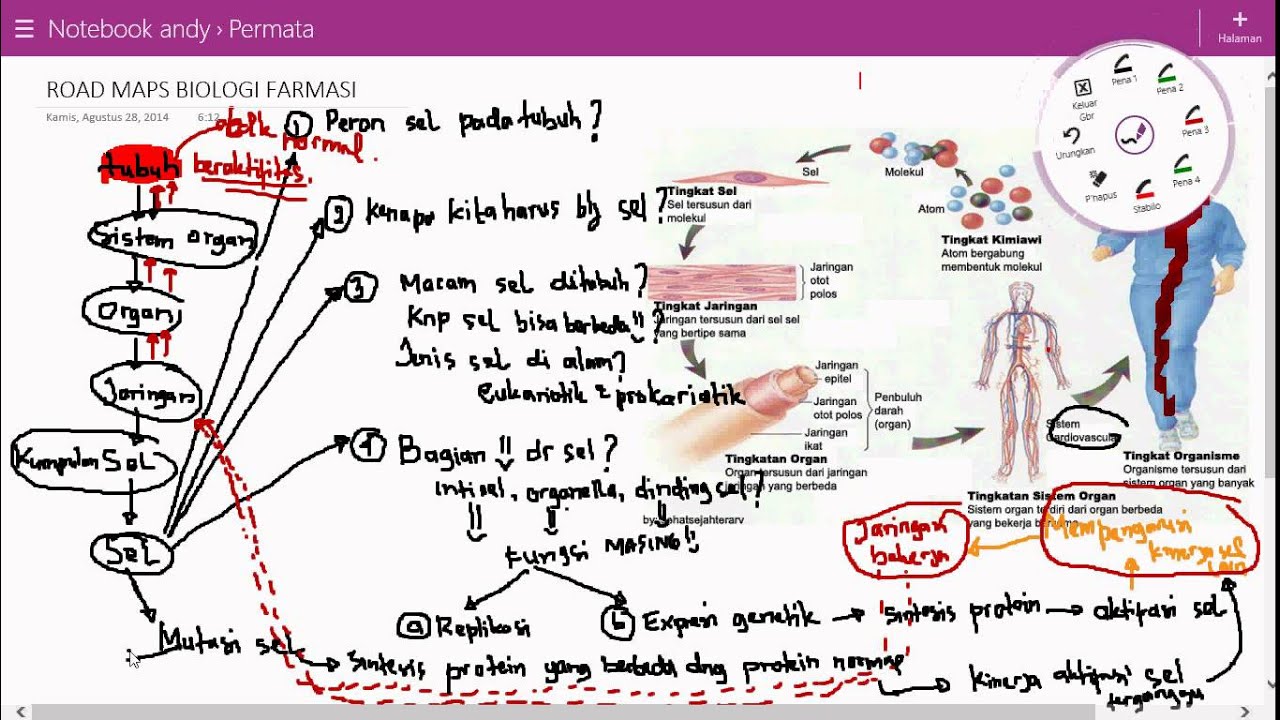 Notebook andy › Permata
Halaman
ROAD MAPS BIOLOGI FARMASI
Kamis, Agustus 28, 2014 6:12
Pena 1
Pena 2
Pena 3
Pena 4
Stabilo
P'hapus
Urungkan
Keluar
Gbr
tubuh
normal.
beraktifitas.
Sistem organ
Organ
Jaringan
Kumpulan Sel
Sel
Mutasi sel
1 Peran sel pada tubuh?
2 Kenapa kita harus blj sel?
3 Macam sel ditubuh?
Knp sel bisa berbeda!!?
Jenis sel di alam?
eukariotik & prokariotik
4 Bagian !! dr sel?
inti sel, organella, dinding sel?
Fungsi MASING!!
a Replikasi
b Expresi genetik
sintesis protein
aktifasi sel
sintesis protein yang berbeda dng protein normal
Kinerja aktifasi sel
terganggu
Jaringan
bekerja
Mempengaruhi
kinerja sel
lain
Sel
Molekul
Atom
Tingkat Sel
Sel tersusun dari
molekul
Tingkat Kimiawi
Atom bergabung
membentuk molekul
Jaringan
otot
polos
Tingkat Jaringan
Jaringan tersusun dari sel sel
yang bertipe sama
Jaringan
epitel
Jaringan
otot polos
Jaringan
ikat
Penbuluh
darah
(organ)
Tingkatan Organ
Organ tersusun dari jaringan
jaringan yang berbeda
Sistem
Cardiovascular
Tingkatan Sistem Organ
Sistem organ terdiri dari organ berbeda
yang bekerja
Tingkat Organisme
Organisme tersusun dari
sistem organ yang banyak
by:sehatsejahterarv